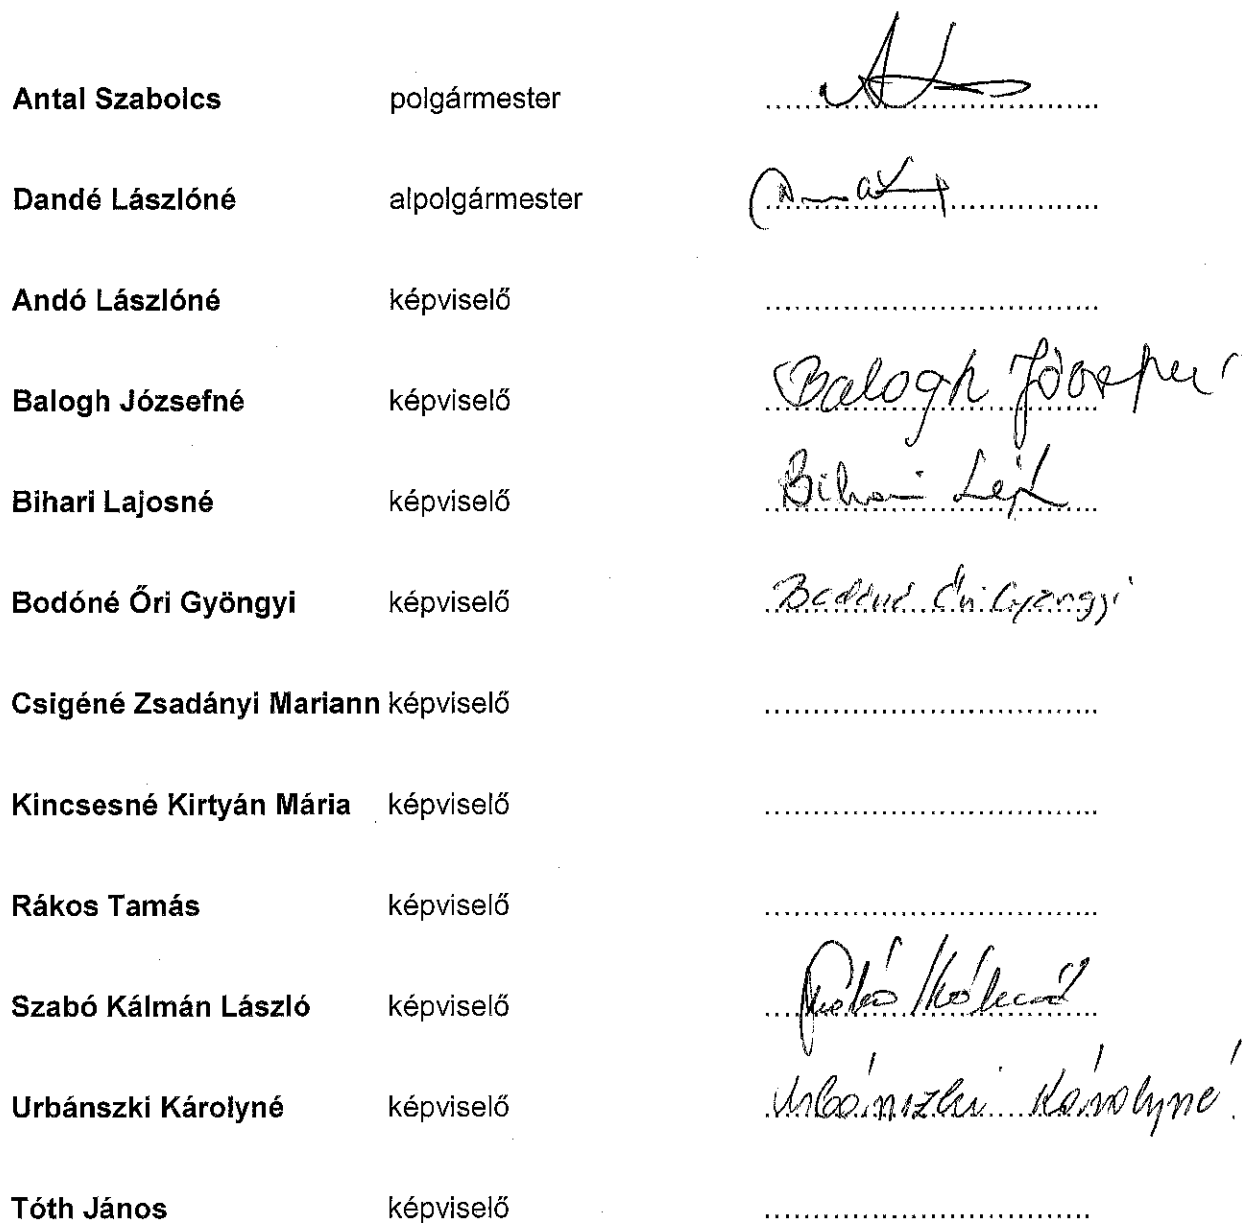 Antal Szabolcs polgármester ..................................
Dandé Lászlóné alpolgármester ..................................
Andó Lászlóné képviselő ..................................
Balogh Józsefné képviselő Balogh Józsefné
Bihari Lajosné képviselő Bihari
Bodóné Őri Gyöngyi képviselő Bodóné Őri Gyöngyi
Csigéné Zsadányi Mariann képviselő ..................................
Kincsesné Kirtyán Mária képviselő ..................................
Rákos Tamás képviselő ..................................
Szabó Kálmán László képviselő Szabó Kálmán
Urbánszki Károlyné képviselő Urbánszki Károlyné
Tóth János képviselő ..................................